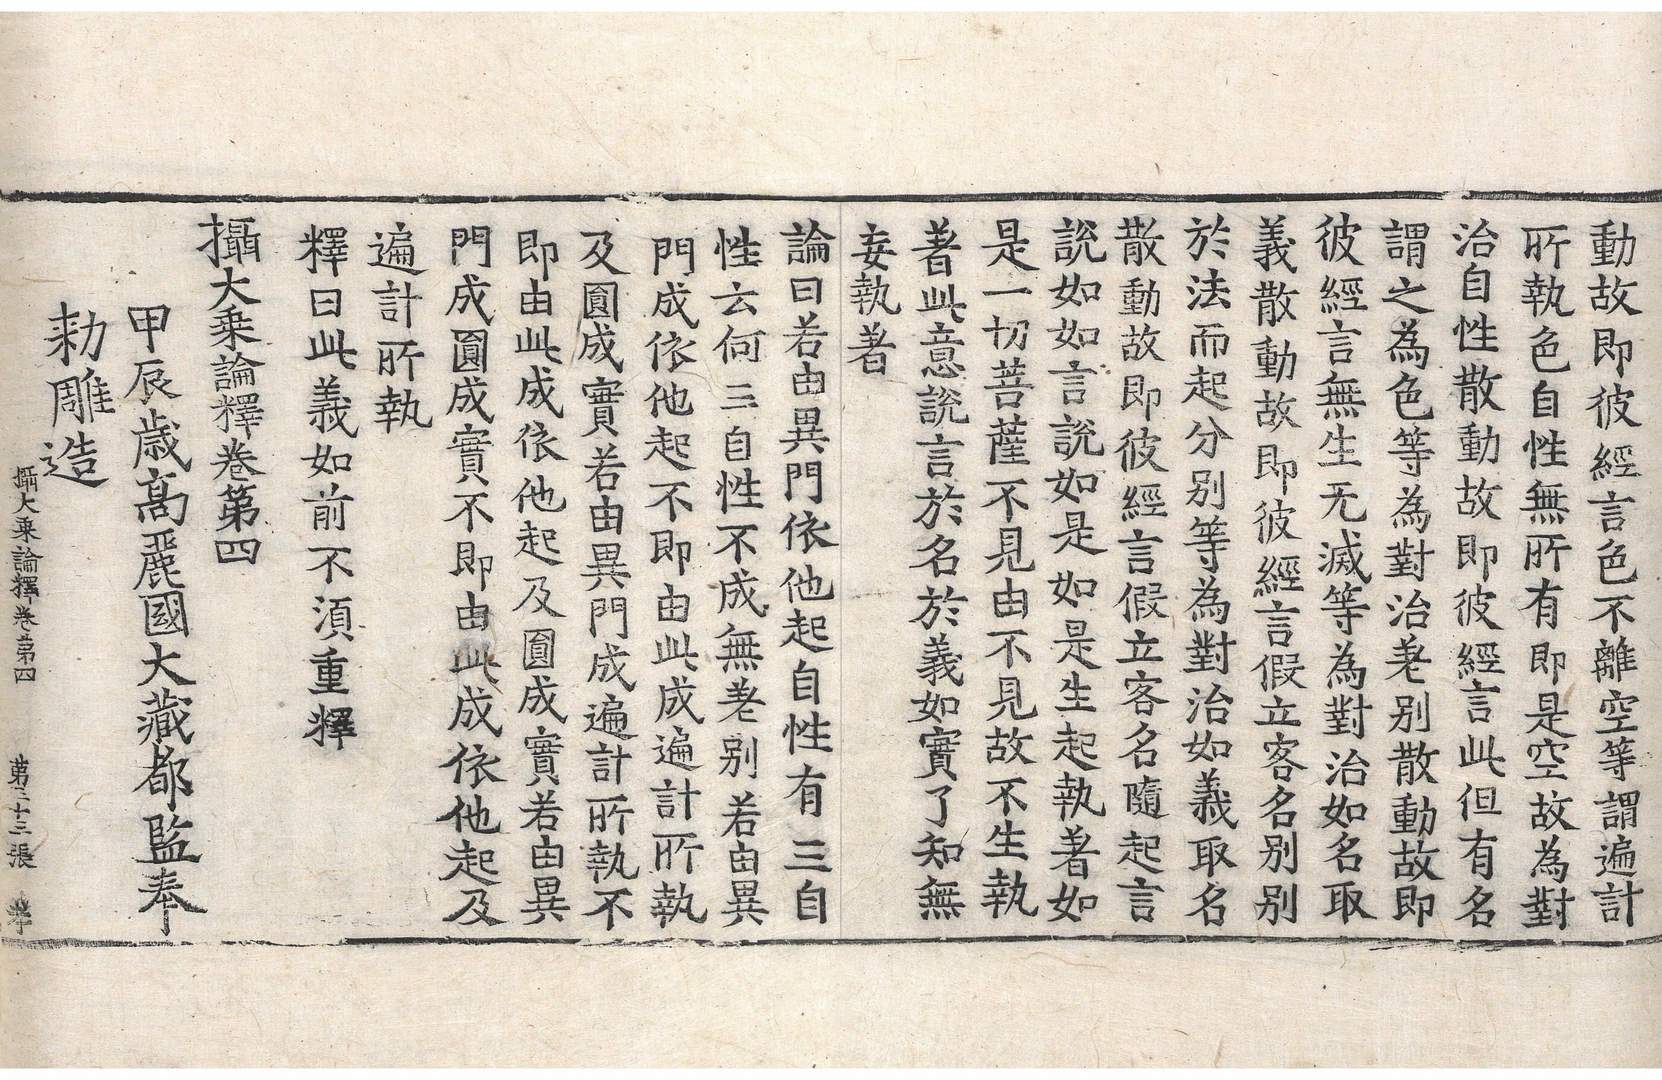 動故即彼經言色不離空等謂遍計
所執色自性無所有即是空故為對
治自性散動故即彼經言此但有名
謂之為色等為對治差别散動故即
彼經言無生无滅等為對治如名取
義散動故即彼經言假立客名别别
於法而起分别等為對治如義取名
散動故即彼經言假立客名隨起言
說如如言說如是如是生起執著如
是一切菩薩不見由不見故不生執
著此意說言於名於義如實了知無
妄執著
論曰若由異門依他起自性有三自
性云何三自性不成無差别若由異
門成依他起不即由此成遍計所執
及圓成實若由異門成遍計所執不
即由此成依他起及圓成實若由異
門成圓成實不即由此成依他起及
遍計所執
釋曰此義如前不須重釋
攝大乘論釋卷第四
甲辰歲高麗國大藏都監奉
勑雕造
攝大乘論釋卷第四 第二十三張